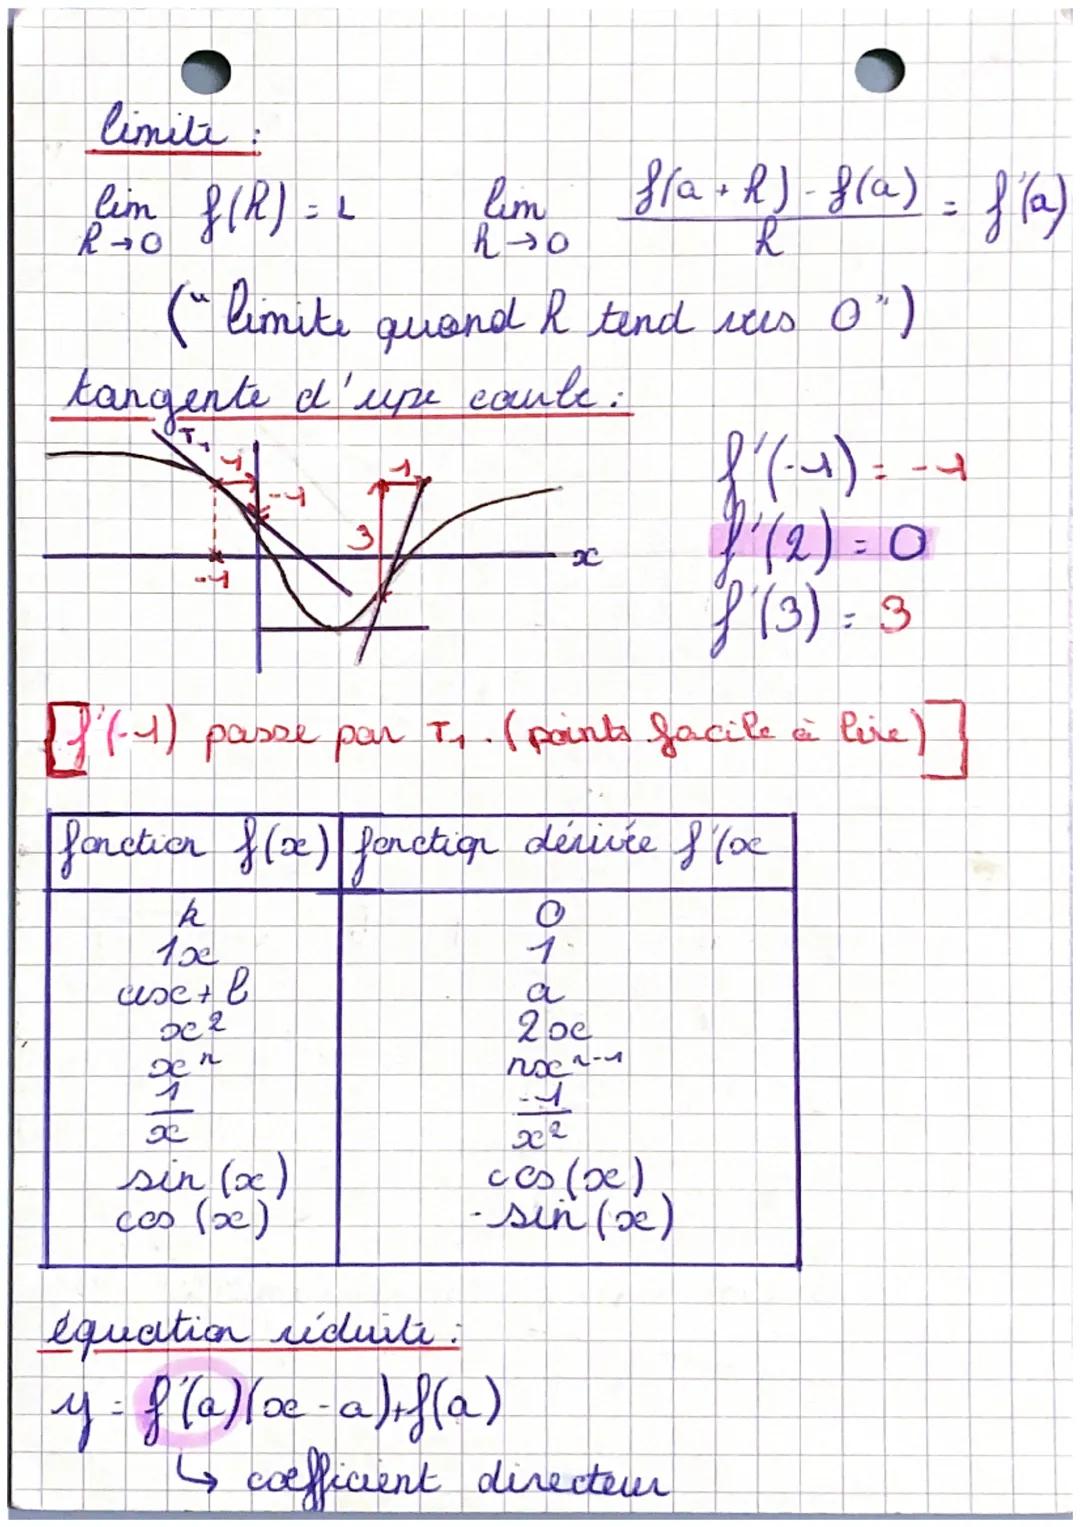 limite :
lim f(h) = L    lim f(a + h) - f(a) / h = f'(a)
h→0    h→0
("limite quand h tend vers 0")
tangente d'une courbe :
T₁
1
-1
1
3
-1
x
f'(-1) = -1
f'(2) = 0
f'(3) = 3
[f'(-1) passe par T₁. (points facile à lire)]
fonction f(x) | fonction dérivée f'(x
k | 0
1x | 1
ax + b | a
x² | 2x
xⁿ | nxⁿ⁻¹
1/x | -1/x²
sin (x) | cos (x)
cos (x) | -sin (x)
équation réduite :
y = f'(a)(x - a)+f(a)
↳ coefficient directeur